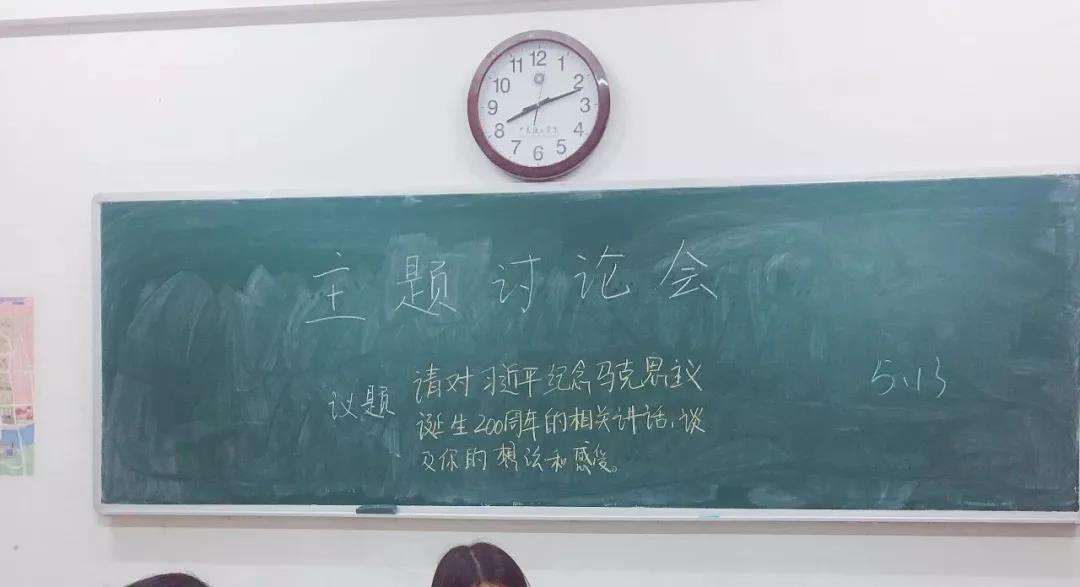 主题讨论会
议题 请对习近平纪念马克思主义
诞生200周年的相关讲话、谈
及你的想法和感受。
5、13
12
1
2
3
4
5
6
7
8
9
10
11